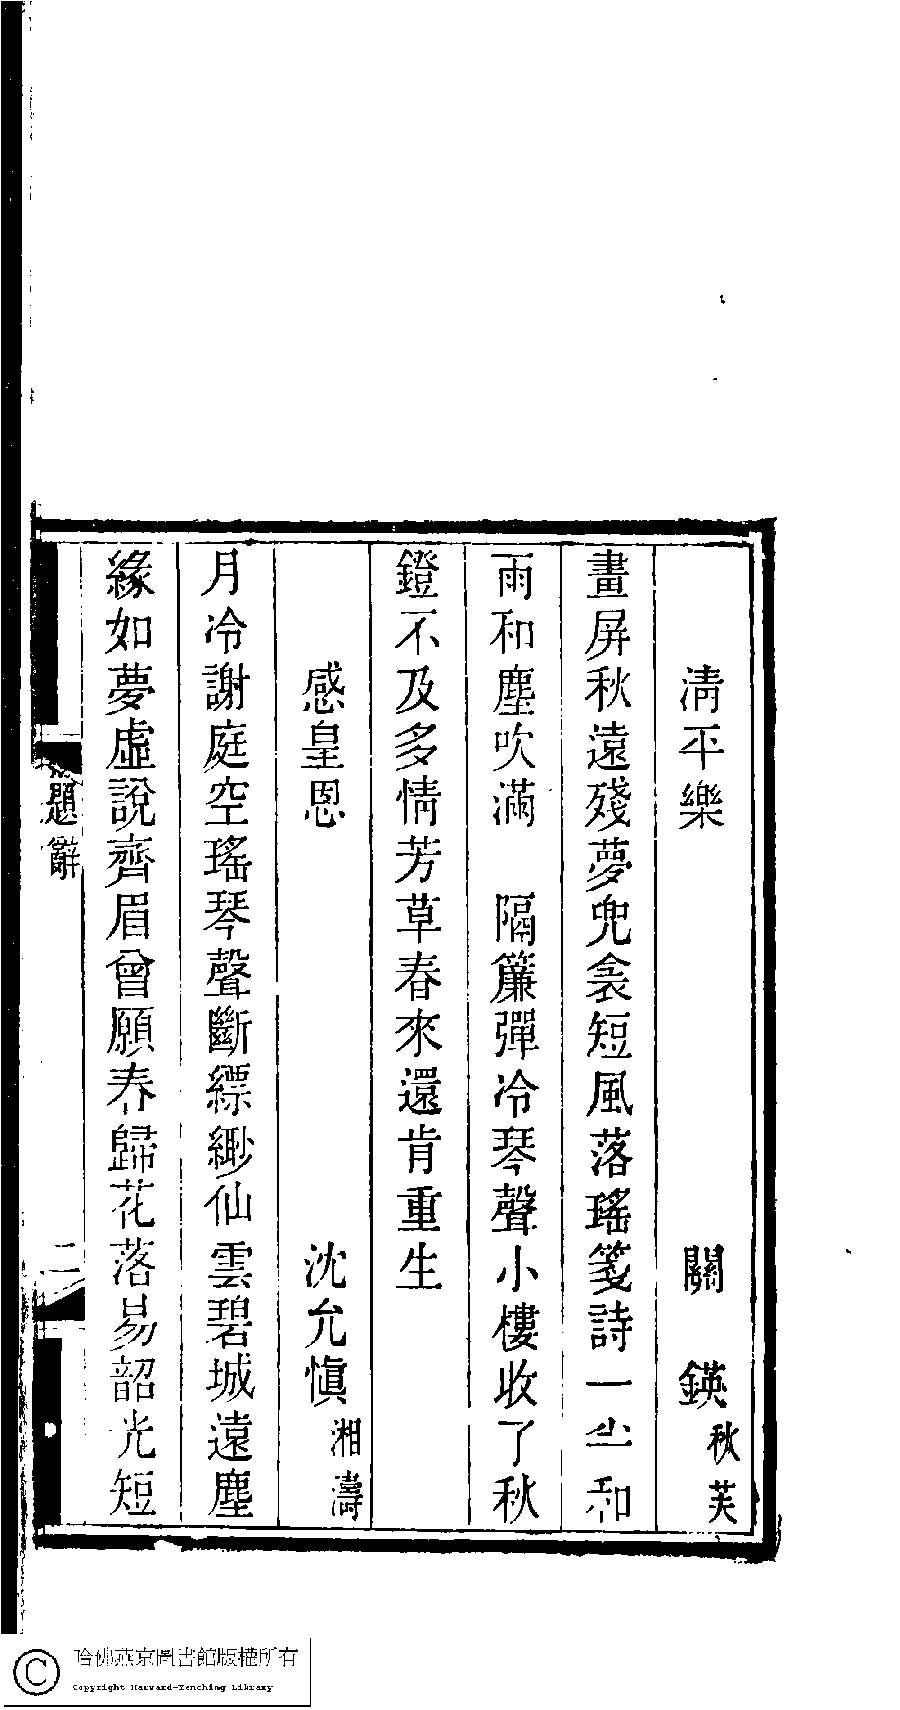 清平樂　關鍈秋芙
畫屏秋遠殘夢兜衾短風落瑤箋詩一半和
雨和塵吹滿　隔簾彈冷琴聲小樓收了秋
鐙不及多情芳草春來還肯重生
感皇恩　沈允愼湘濤
月冷謝庭空瑤琴聲斷縹緲仙雲碧城遠塵
緣如夢虛說齊眉曾願春歸花落易韶光短
題辭　二
哈佛燕京圖書館版權所有
Copyright Harvard-Yenching Library